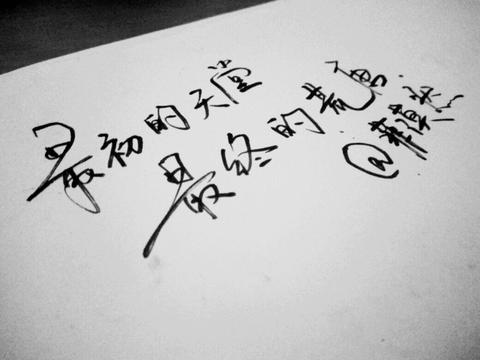 最初的天堂
最终的荒唐
@